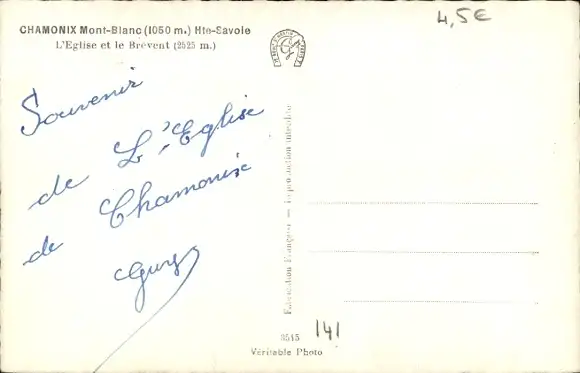 CHAMONIX Mont-Blanc (1050 m.) Hte-Savoie
L'Eglise et le Brévent (2525 m.)
4,5€
Souvenir
de L'Eglise
de Chamonix
Fabrication Française — Reproduction interdite
3515
141
Véritable Photo